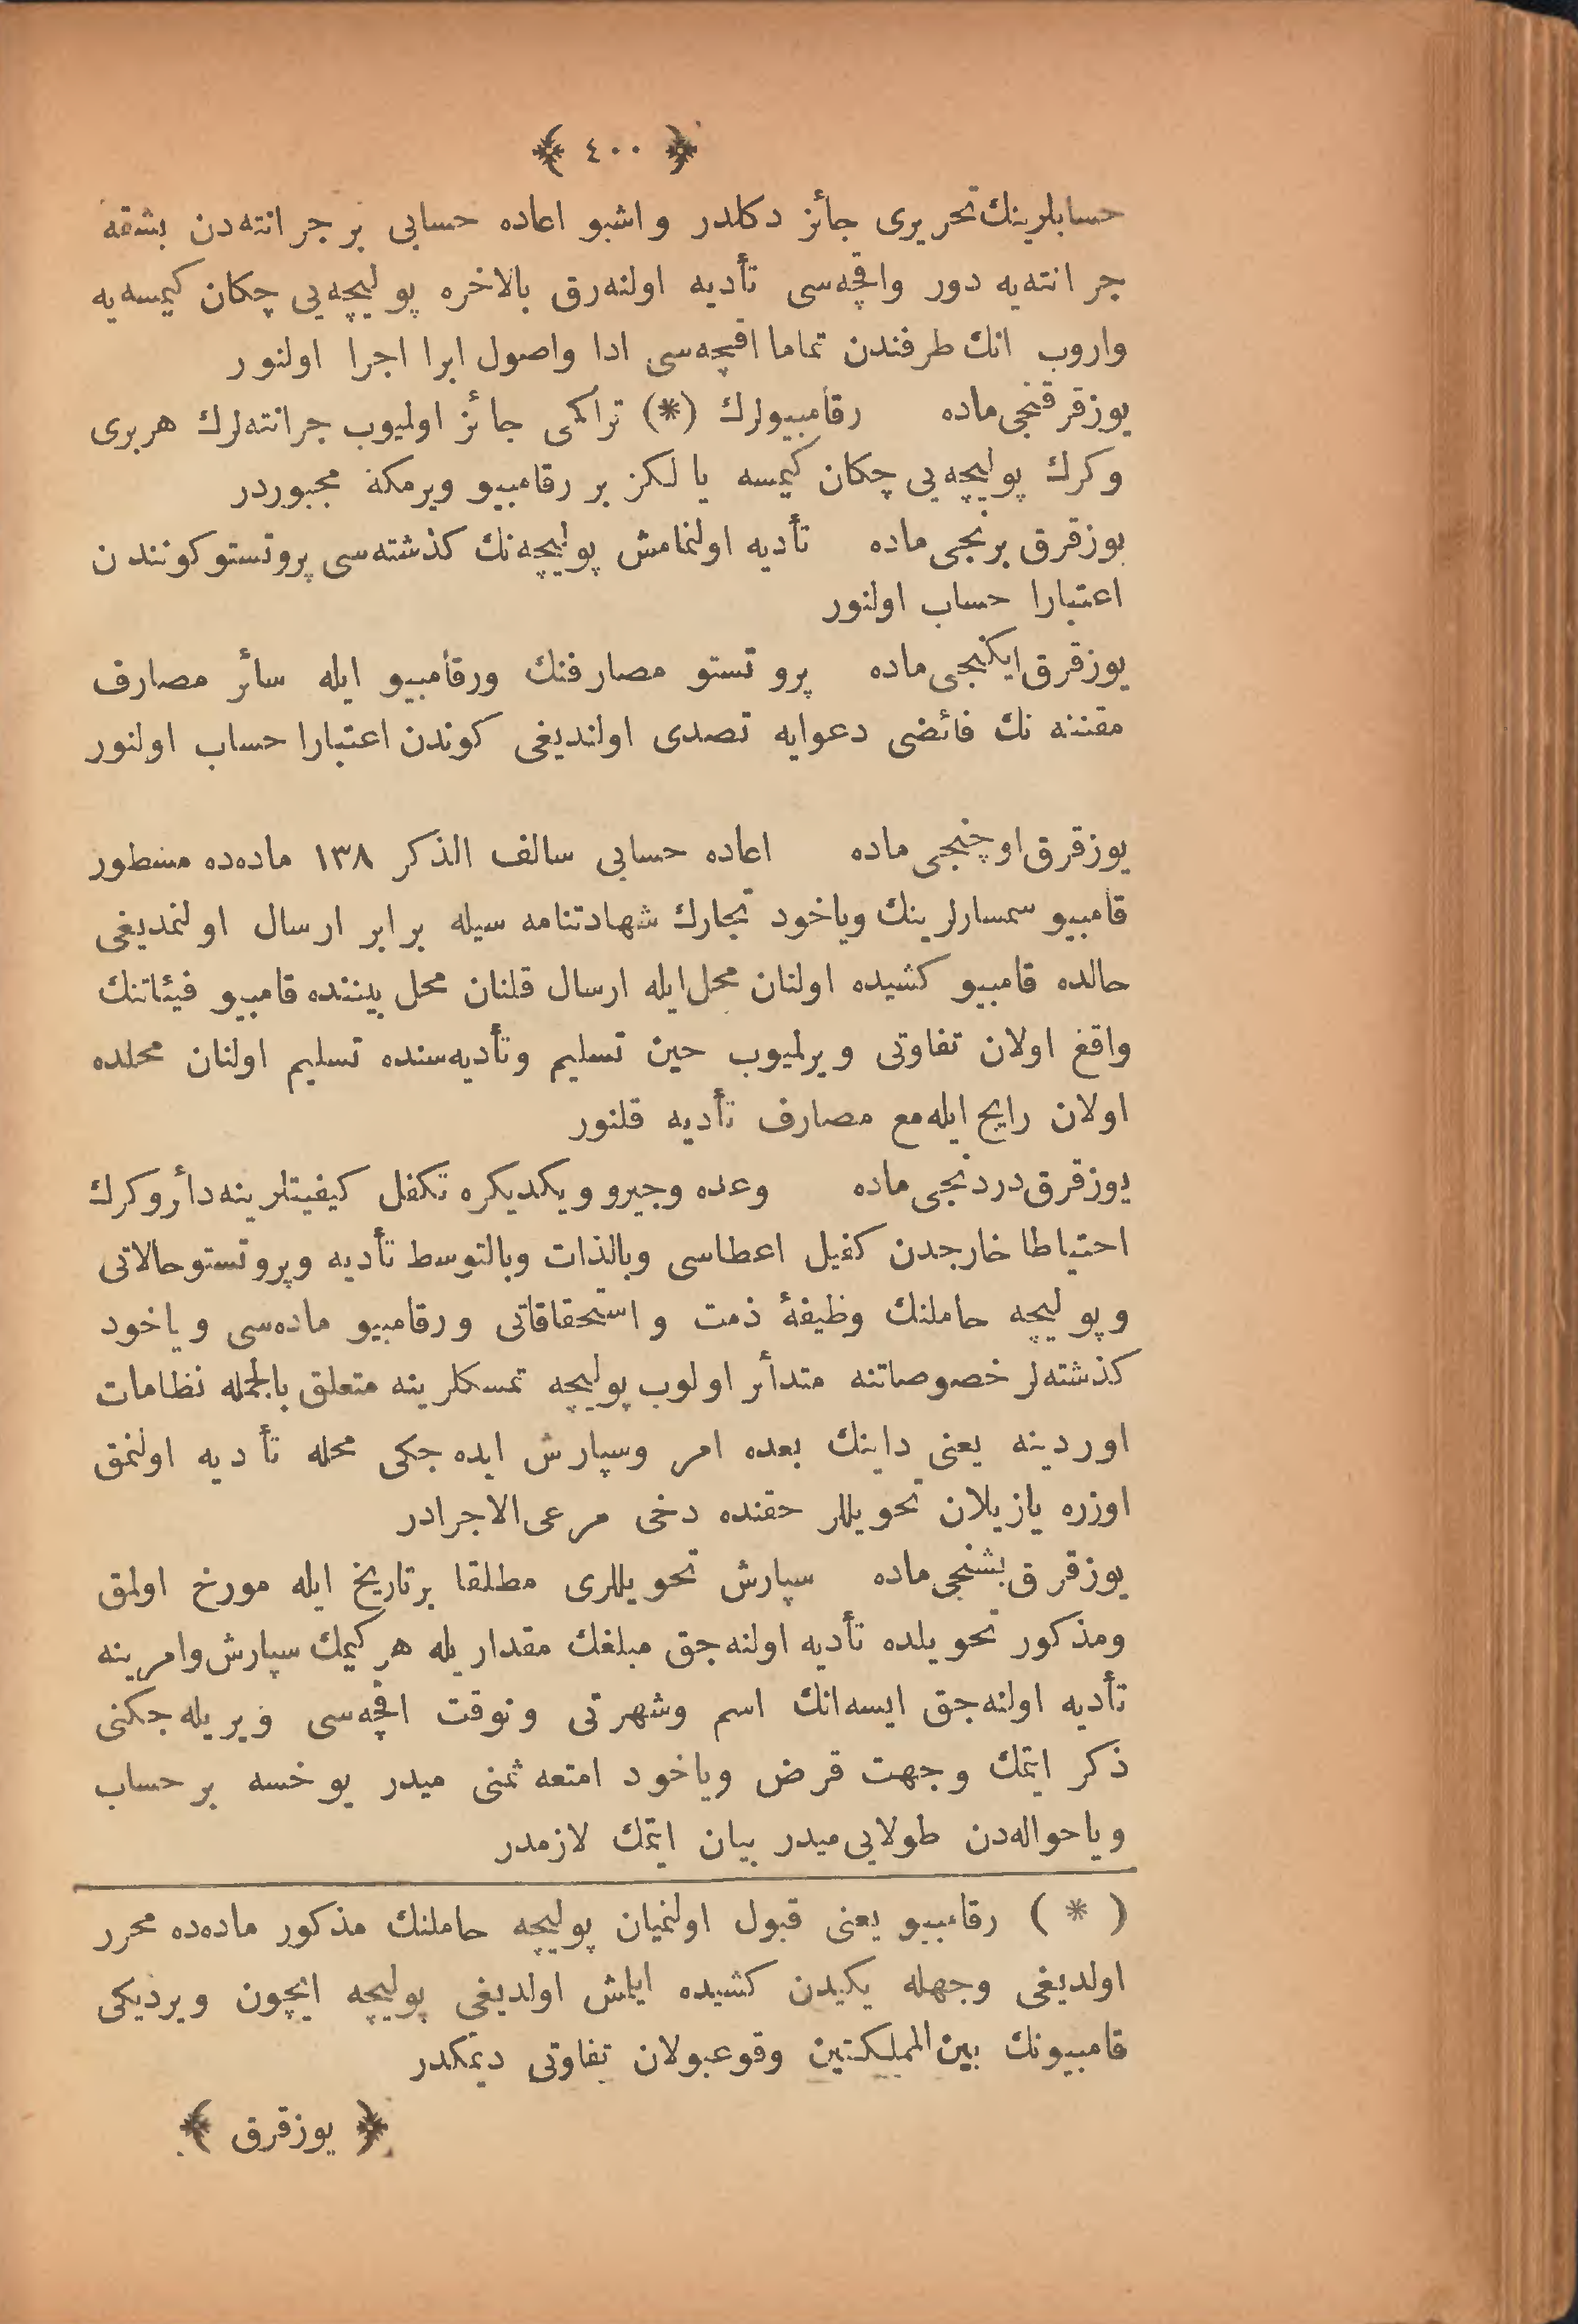 ﴿ ٤٠٠ ﴾
حسابلرینك تحریری جائز دكلدر و اشبو اعاده حسابی بر جرانته‌دن بشقه
جرانته‌یه دور واقچه‌سی تأدیه اولنه‌رق بالاخره پولیچه‌یی چكان كیمسه‌یه
واروب انك طرفندن تماما اقچه‌سی ادا واصول ابرا اجرا اولنور
یوزقرقنجی ماده رقامبیولرك (*) تراكمی جائز اولمیوب جرانته‌لرك هربری
وكرك پولیچه‌یی چكان كیمسه یالكز بر رقامبیو ویرمكه مجبوردر
یوزقرق برنجی ماده تأدیه اولنمامش پولیچه‌نك كذشته‌سی پروتستو كونندن
اعتبارا حساب اولنور
یوزقرق ایكنجی ماده پروتستو مصارفنك ورقامبیو ایله سائر مصارف
مقننه نك فائضی دعوایه تصدی اولندیغی كوندن اعتبارا حساب اولنور
یوزقرق اوچنجی ماده اعاده حسابی سالف الذكر ١٣٨ ماده‌ده مسطور
قامبیو سمسارلرینك ویاخود تجارك شهادتنامه سیله برابر ارسال اولنمدیغی
حالده قامبیو كشیده اولنان محل ایله ارسال قلنان محل بیننده قامبیو فیئاتنك
واقع اولان تفاوتی ویرلمیوب حین تسلیم وتأدیه‌سنده تسلیم اولنان محلده
اولان رایج ایله مع مصارف تأدیه قلنور
یوزقرق دردنجی ماده وعده وجیرو ویكدیكره تكفل كیفیتلرینه دأر وكرك
احتیاطا خارجدن كفیل اعطاسی وبالذات وبالتوسط تأدیه وپروتستو حالاتی
وپولیچه حاملنك وظیفهٔ ذمت و استحقاقاتی ورقامبیو ماده‌سی ویاخود
كذشته‌لر خصوصاتنه متدأر اولوب پولیچه تمسكلرینه متعلق بالجمله نظامات
اوردینه یعنی داینك بعده امر وسپارش ایده جكی محله تأدیه اولنمق
اوزره یازیلان تحویللر حقنده دخی مرعی الاجرادر
یوزقرق بشنجی ماده سپارش تحویللری مطلقا برتاریخ ایله مورخ اولمق
ومذكور تحویلده تأدیه اولنه‌جق مبلغك مقداریله هر كیمك سپارش وامرینه
تأدیه اولنه‌جق ایسه انك اسم وشهرتی ونوقت اقچه‌سی ویریله جكنی
ذكر ایتمك وجهت قرض ویاخود امتعه ثمنی میدر یوخسه بر حساب
ویاحواله‌دن طولایی میدر بیان ایتمك لازمدر
( * ) رقامبیو یعنی قبول اولنمیان پولیچه حاملنك مذكور ماده‌ده محرر
اولدیغی وجهله یكیدن كشیده ایلمش اولدیغی پولیچه ایچون ویردیكی
قامبیونك بین المملكتین وقوعبولان تفاوتی دیمكدر
﴿ یوزقرق ﴾